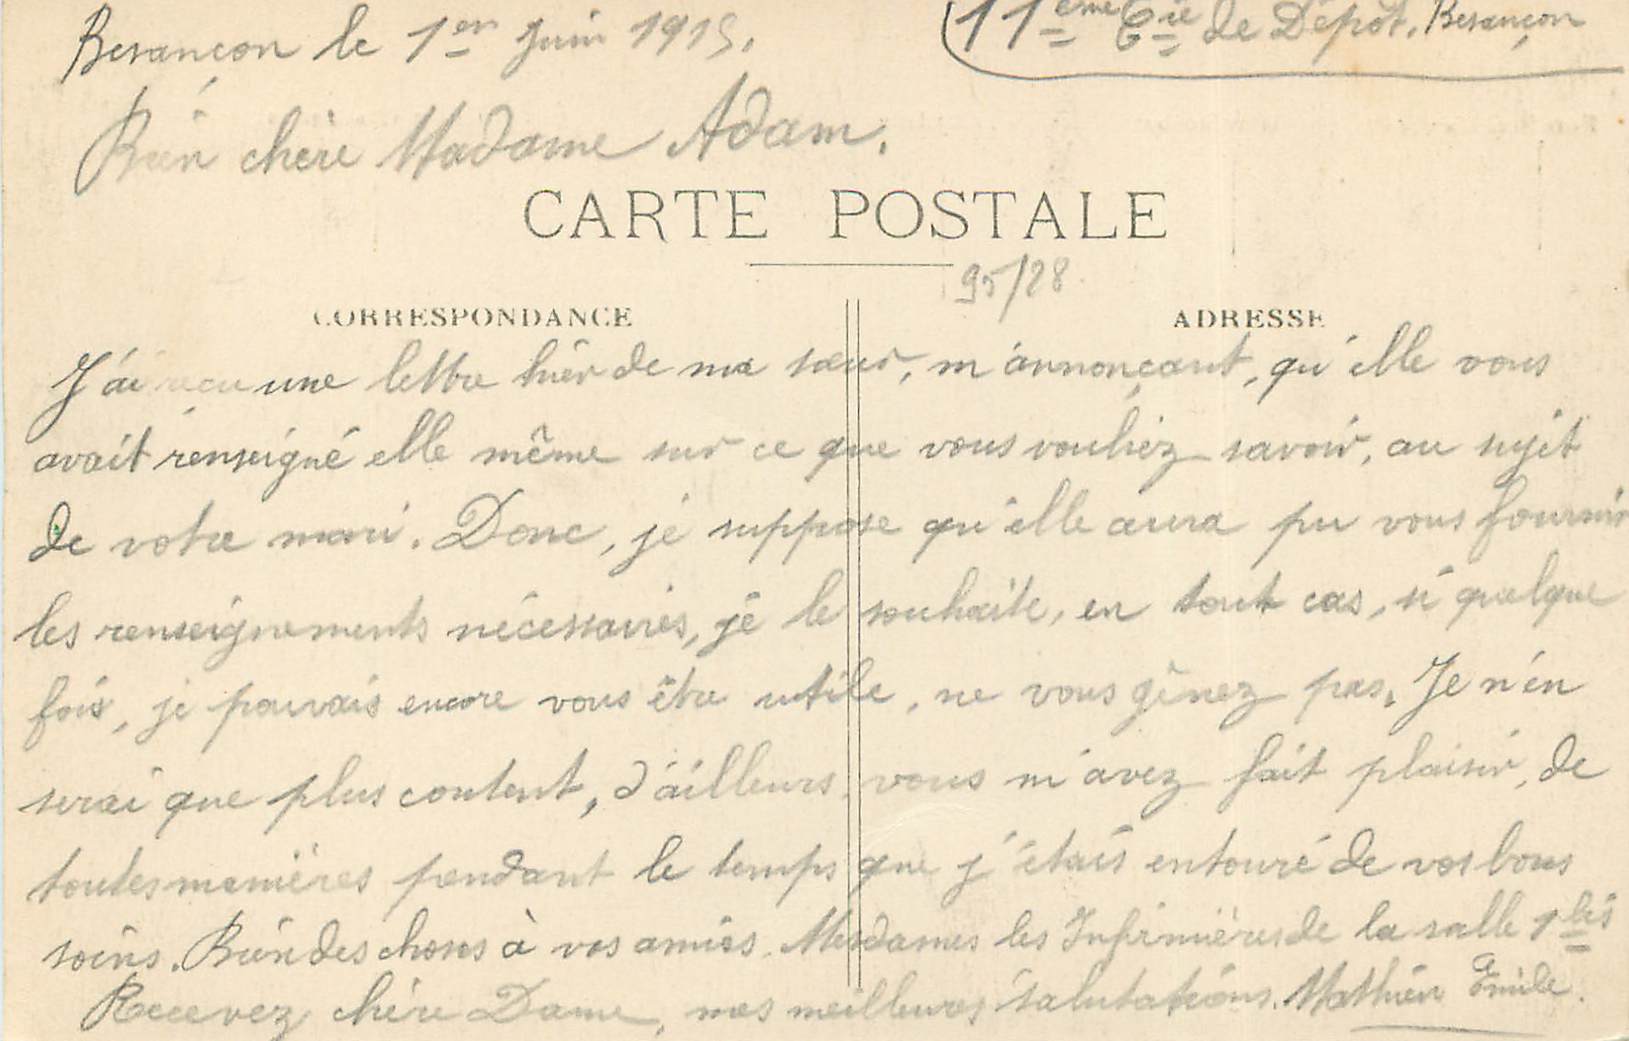 Besançon le 1er Juin 1915.
11ème Cie de Dépôt. Besançon
Bien chère Madame Adam.
CARTE POSTALE
95/28
CORRESPONDANCE
ADRESSE
J'ai reçu une lettre hier de ma sœur, m'annonçant, qu'elle vous
avait renseigné elle même sur ce que vous vouliez savoir, au sujet
de votre mari. Donc, je suppose qu'elle aura pu vous fournir
les renseignements nécessaires, je le souhaite, en tout cas, si quelque
fois, je pouvais encore vous être utile, ne vous gênez pas. Je n'en
serai que plus content, d'ailleurs, vous m'avez fait plaisir, de
toutes manières pendant le temps que j'étais entouré de vos bons
soins. Bien des choses à vos amies. Mesdames les Infirmières de la salle 1bis
Recevez chère Dame, mes meilleures salutations. Mathieu Emile.